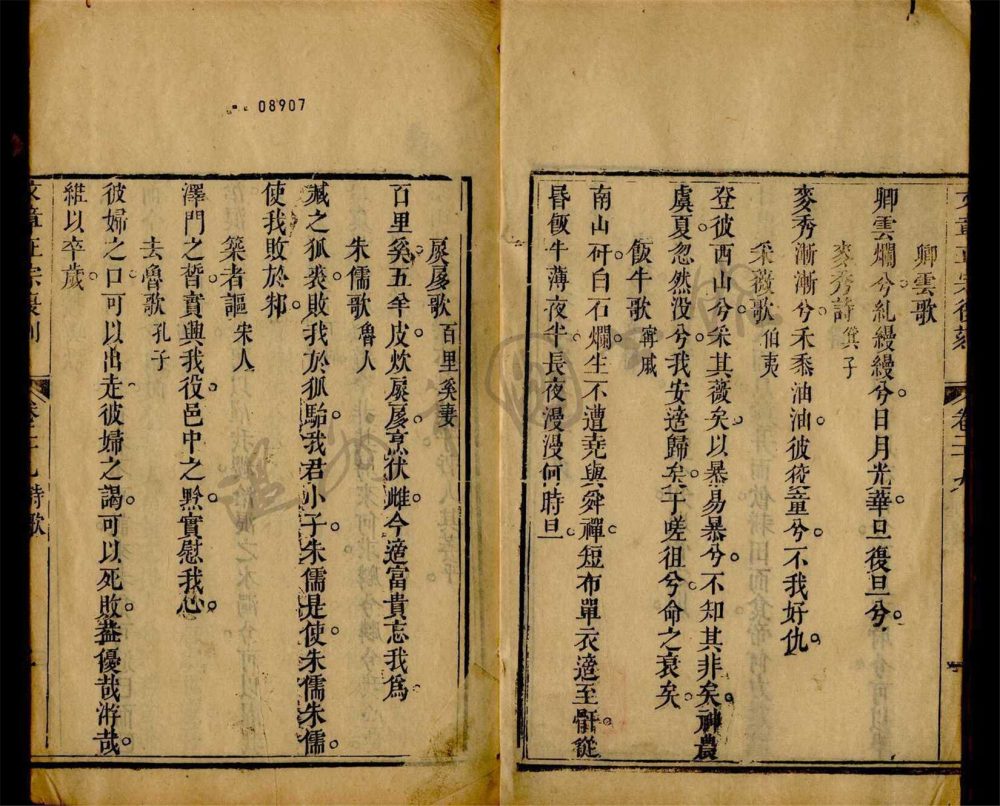 卿雲歌
卿雲爛兮糺縵縵兮日月光華旦復旦兮
麥秀詩 箕子
麥秀漸漸兮禾黍油油彼狡童兮不我好仇
采薇歌 伯夷
登彼西山兮采其薇矣以暴易暴兮不知其非矣神農
虞夏忽然没兮我安適歸矣于嗟徂兮命之衰矣
飯牛歌 甯戚
南山矸白石爛生不遭堯與舜禪短布單衣適至骭從
昏飯牛薄夜半長夜漫漫何時旦
扊扅歌 百里奚妻
百里奚五羊皮炊扊扅烹伏雌今適富貴忘我爲
朱儒歌 魯人
臧之狐裘敗我於狐駘我君小子朱儒是使朱儒朱儒
使我敗於邾
築者謳 宋人
澤門之晳實興我役邑中之黔實慰我心
去魯歌 孔子
彼婦之口可以出走彼婦之謁可以死敗葢優哉游哉
維以卒歲
詩歌
08907